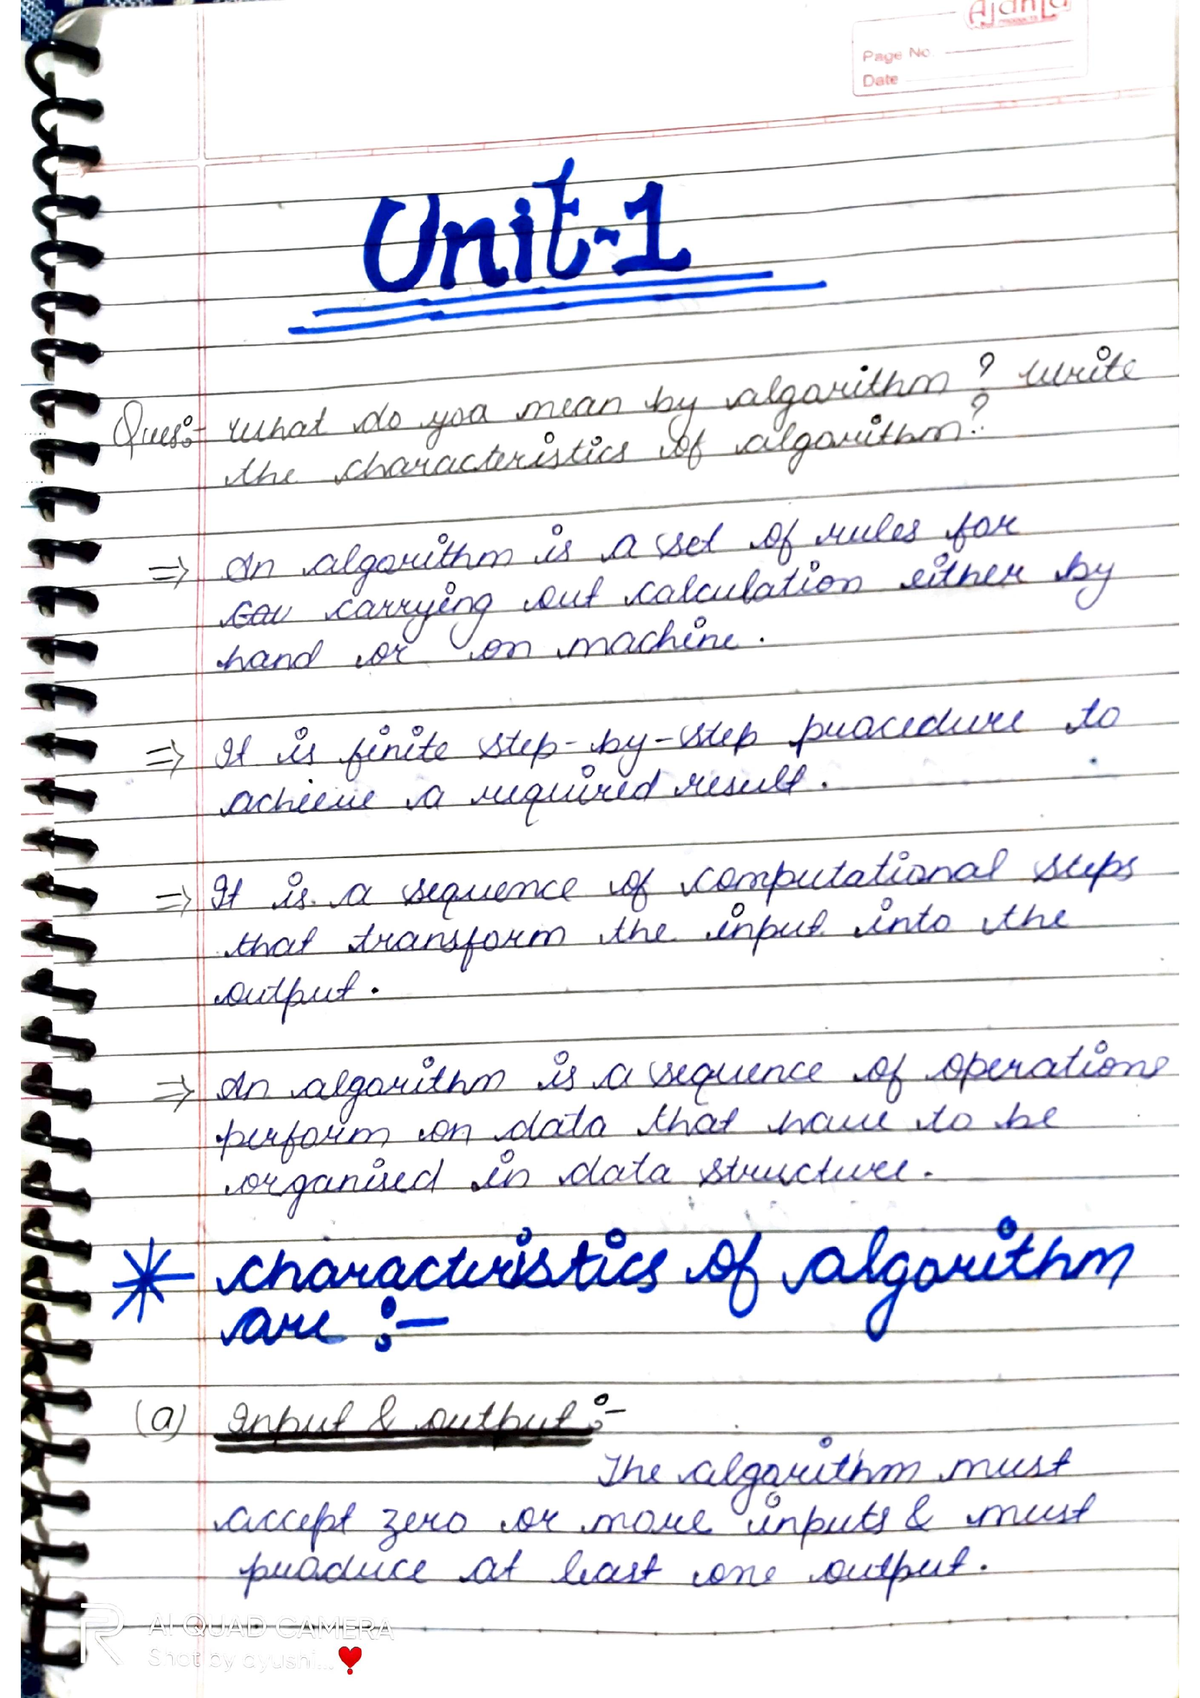 Ajanta
Page No.
Date
Unit-1
Ques:- What do you mean by algorithm ? Write
the characteristics of algorithm?
=> An algorithm is a set of rules for
carrying out calculation either by
hand or on machine.
=> It is finite step-by-step procedure to
achieve a required result.
=> It is a sequence of computational steps
that transform the input into the
output.
=> An algorithm is a sequence of operations
perform on data that have to be
organised in data structure.
* characteristics of algorithm
are :-
(a) Input & output :-
The algorithm must
accept zero or more inputs & must
produce at least one output.
AI QUAD CAMERA
Shot by ayushi...❤